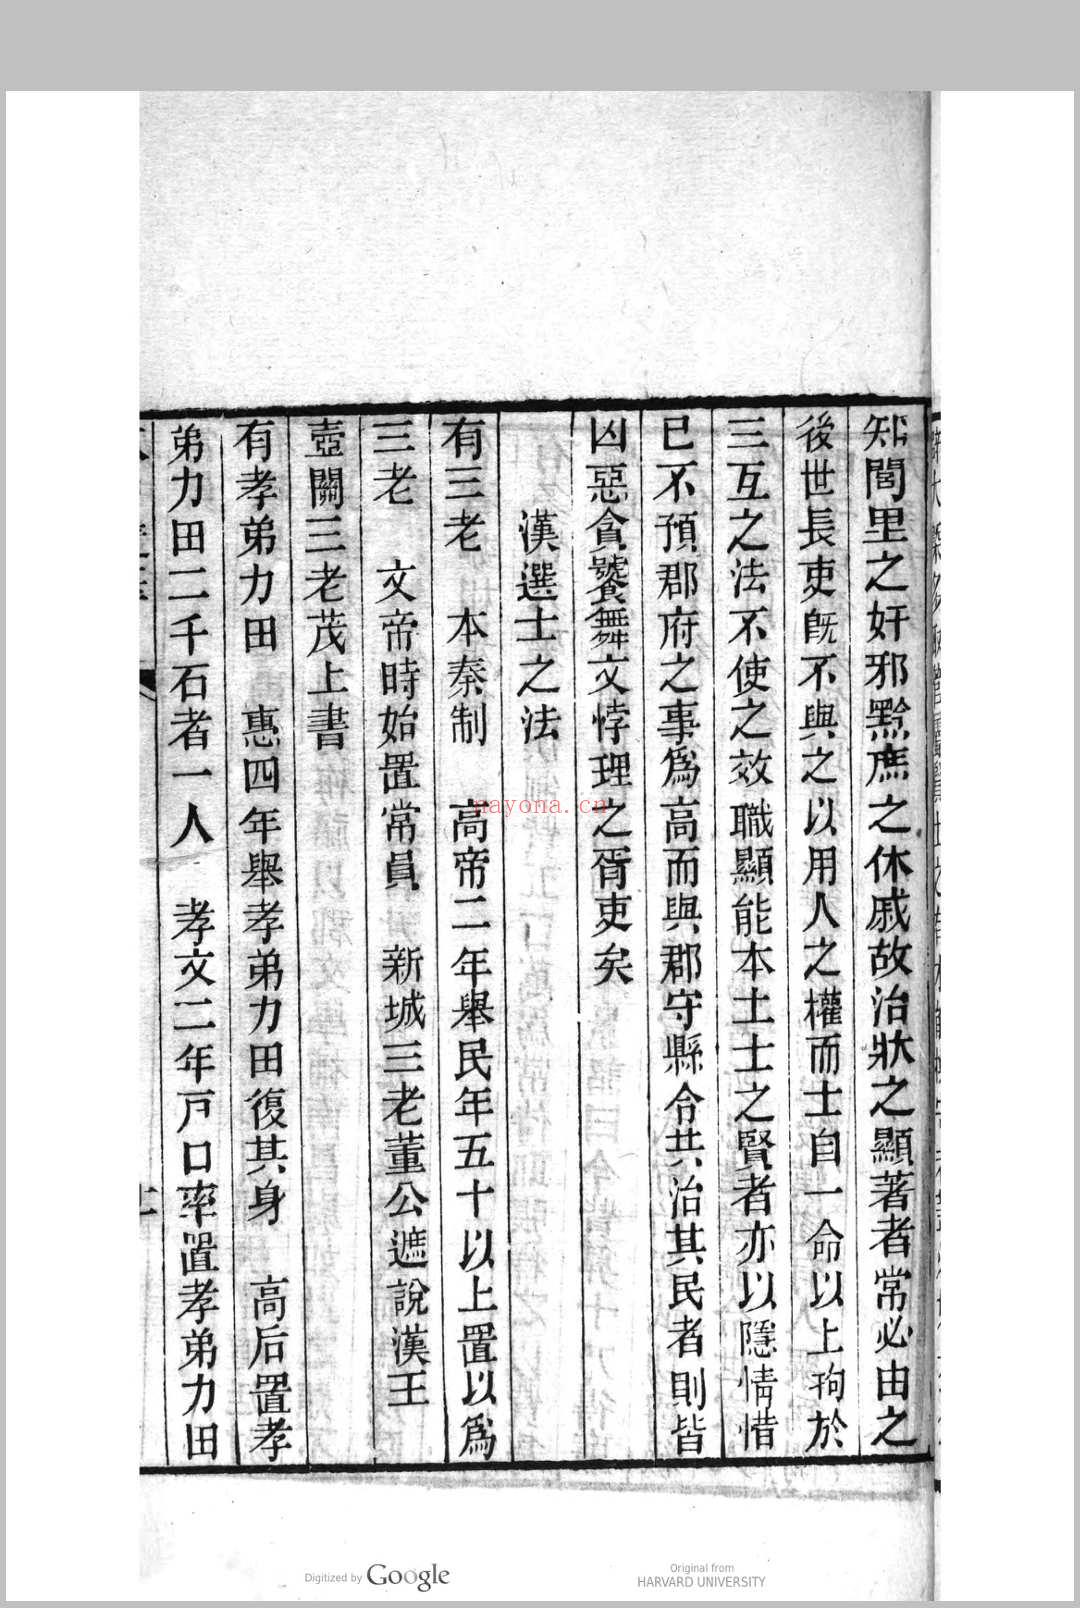 知閭里之奸邪黔庶之休戚故治狀之顯著者常必由之
後世長吏既不與之以用人之權而士自一命以上拘於
三互之法不使之效職顯能本土士之賢者亦以隱情惜
已不預郡府之事爲高而與郡守縣令共治其民者則皆
凶惡貪饕舞文悖理之胥吏矣
漢選士之法
有三老 本秦制 高帝二年舉民年五十以上置以爲
三老 文帝時始置常員 新城三老董公遮說漢王
壺關三老茂上書
有孝弟力田 惠四年舉孝弟力田復其身 高后置孝
弟力田二千石者一人 孝文二年戸口率置孝弟力田
nayona.cn
Digitized by Google
Original from
HARVARD UNIVERSITY